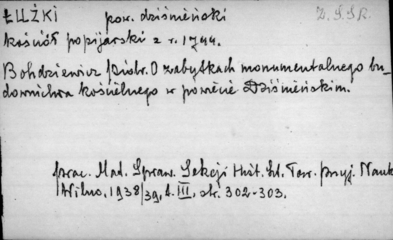 ŁUŻKI pow. dziśnieński Z.S.S.R.
kościół popijarski z r. 1744.
Bohdziewicz Piotr. O zabytkach monumentalnego bu-
downictwa kościelnego w powiecie Dziśnieńskim.
Prac. Mat. Spraw. Sekcji Hist. Szt. Tow. Przyj. Nauk
Wilno, 1938/39, t. III, str. 302-303.